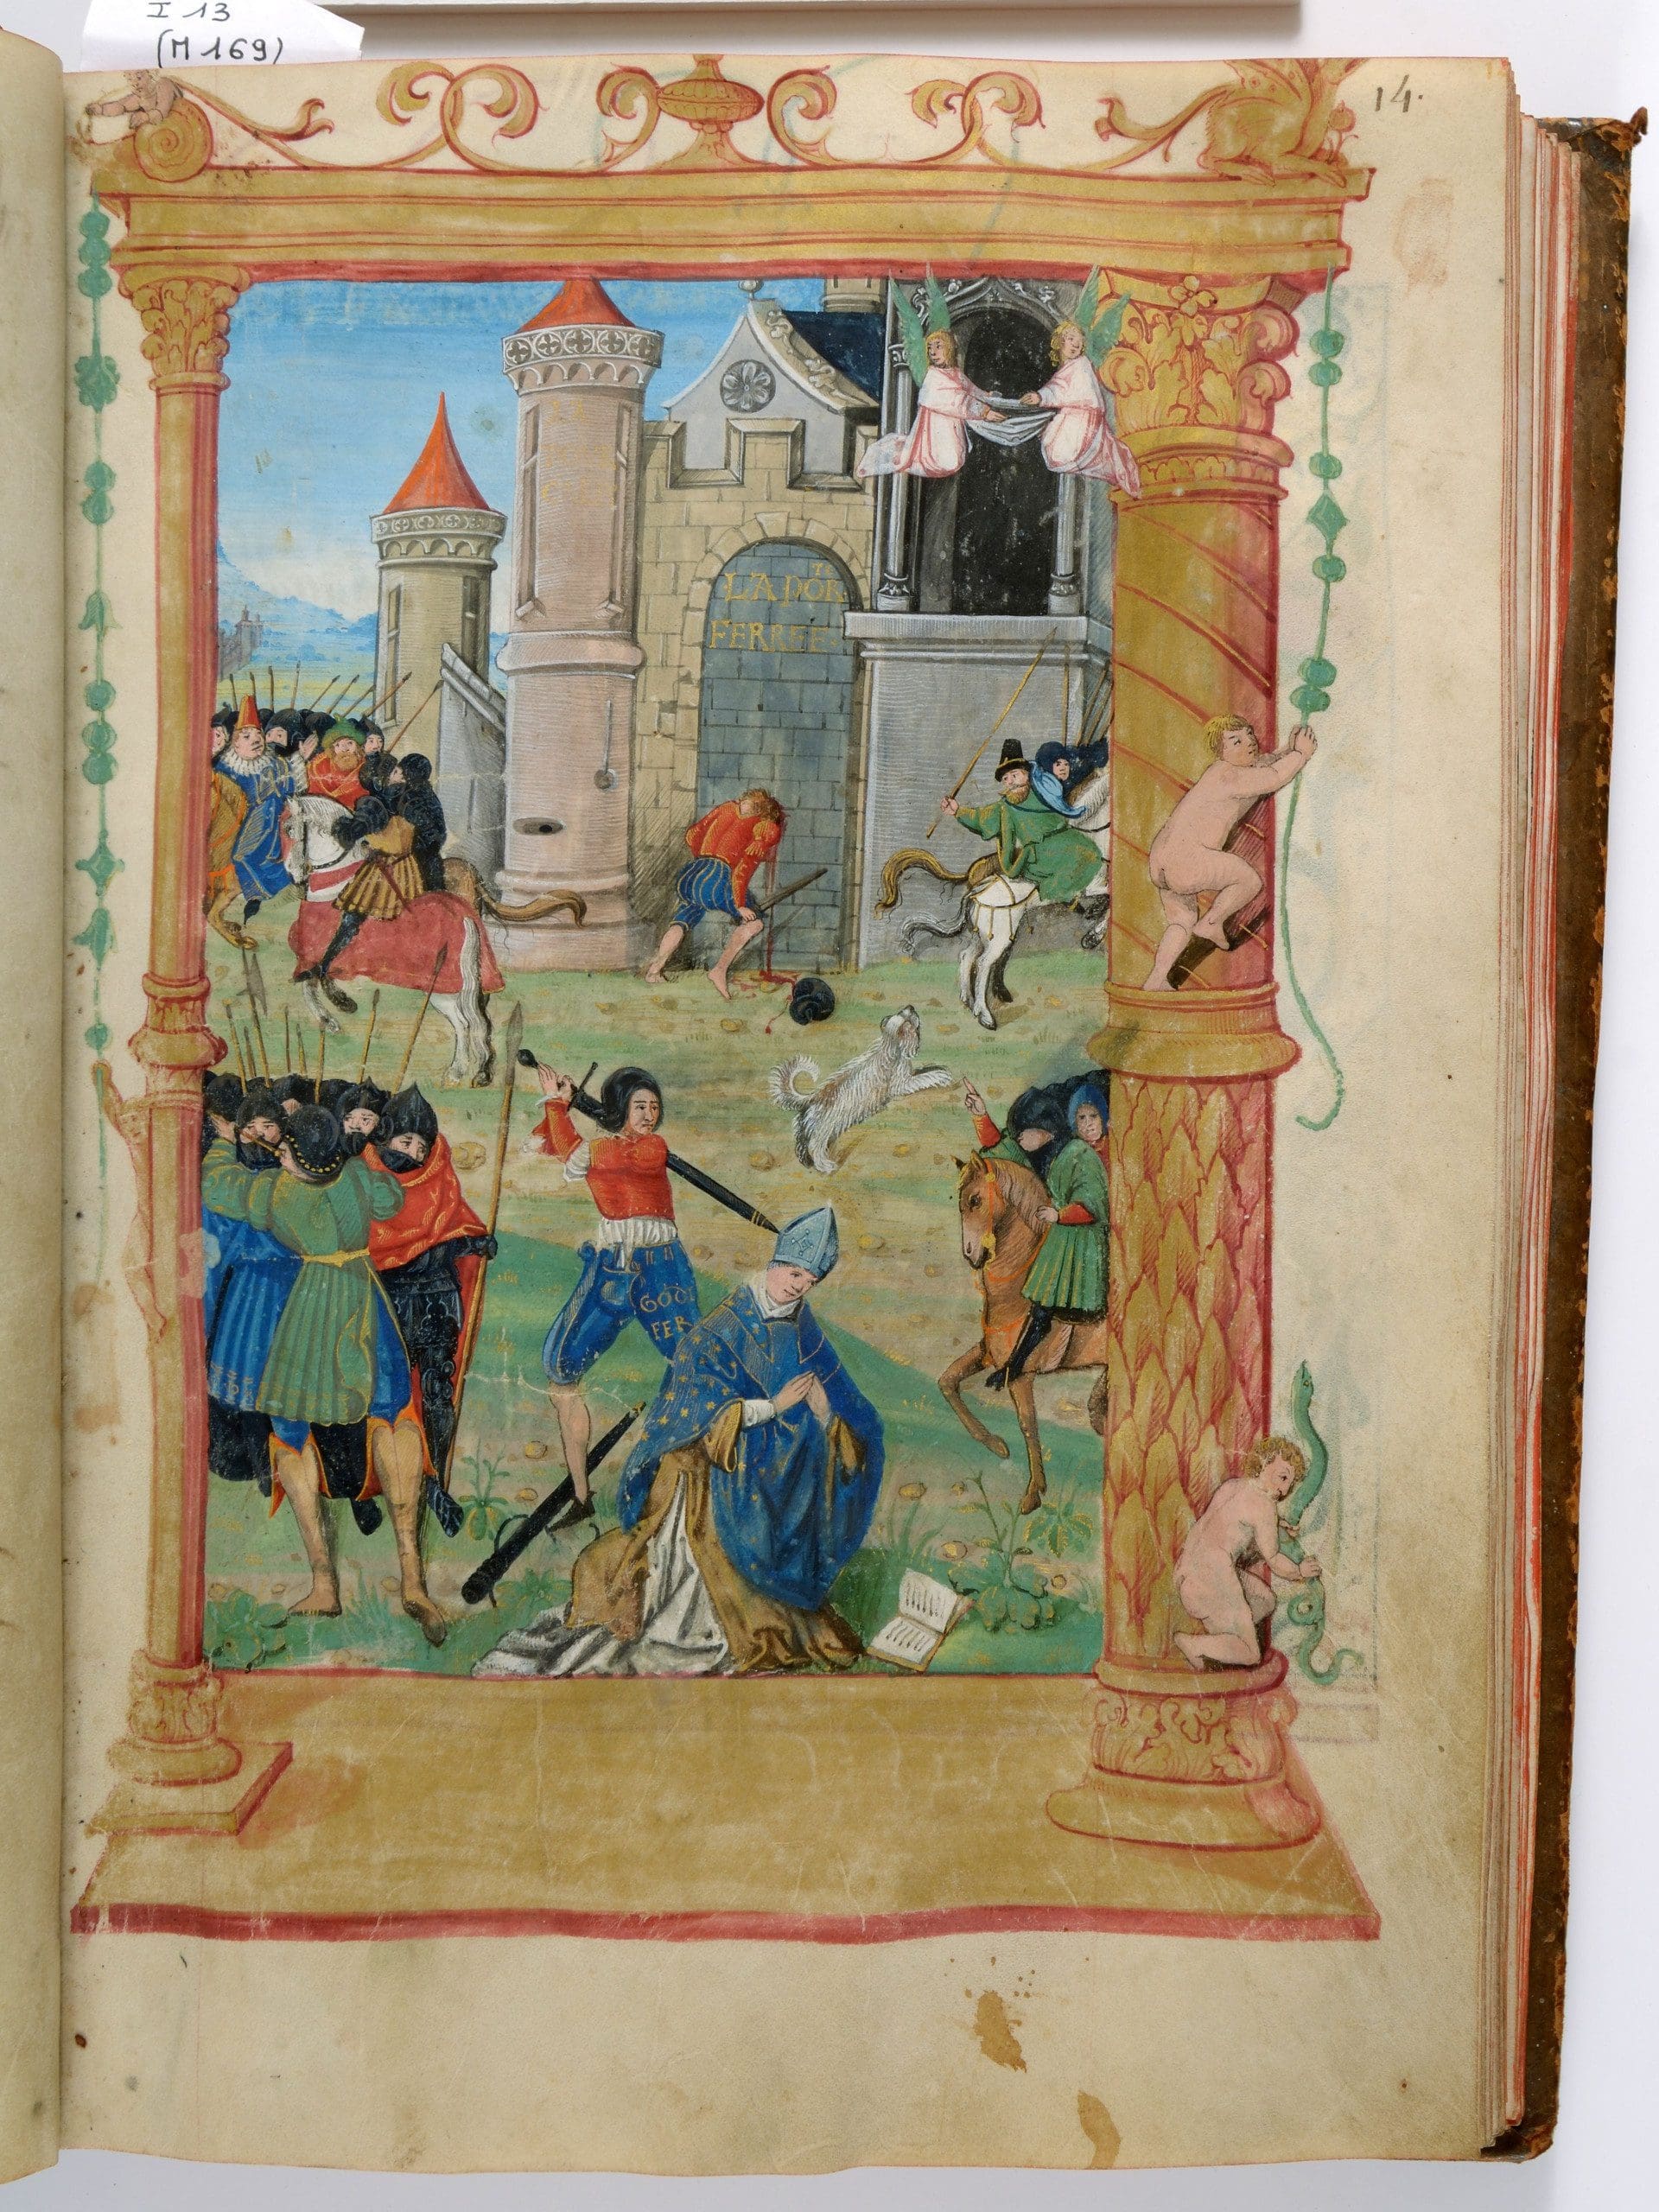 I 13
(M 169)
14.
LA PORT
FERREE
GODI
FER